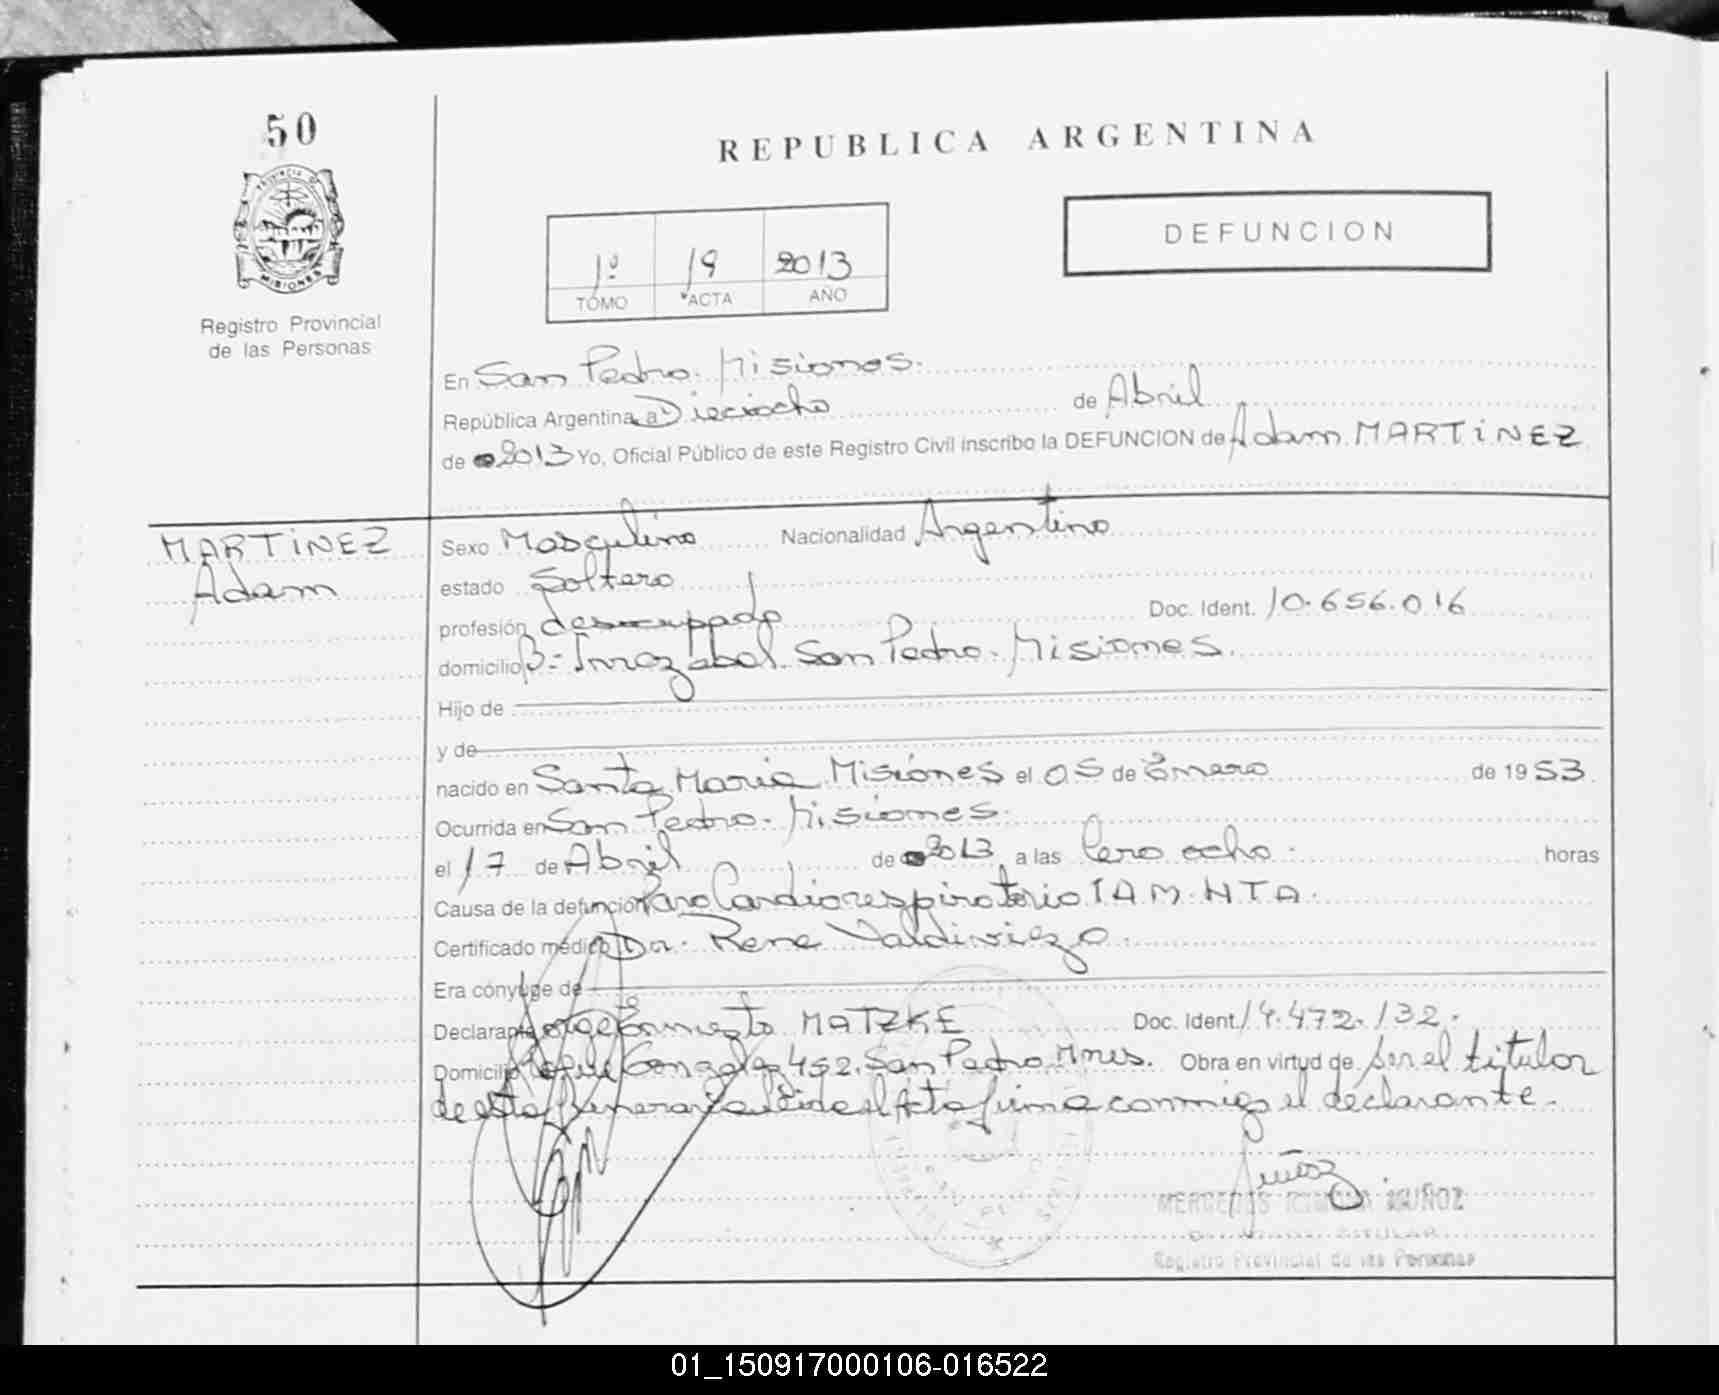 50
PROVINCIA DE
MISIONES
Registro Provincial
de las Personas
REPUBLICA ARGENTINA
DEFUNCION
1º 19 2013
TOMO ACTA AÑO
En San Pedro. Misiones.
República Argentina, a Dieciocho de Abril
de 2013 Yo, Oficial Público de este Registro Civil inscribo la DEFUNCION de Adam MARTiNEZ
MARTiNEZ
Adam
Sexo Masculino Nacionalidad Argentino
estado Soltero
profesión desocupado Doc. Ident. 10.656.016
domicilio B= Irrazabal. San Pedro. Misiones.
Hijo de
y de
nacido en Santa Maria Misiones el 05 de Enero de 1953
Ocurrida en San Pedro. Misiones.
el 17 de Abril de 2013, a las Cero ocho. horas
Causa de la defunción Paro Cardiorespiratorio. IAM. HTA.
Certificado médico Dr. Rene Valdiviezo.
Era cónyuge de
Declarante Jorge Ernesto MATZKE Doc. Ident. 14.472.132.
Domicilio Roque Gonzalez 452. San Pedro Mnes. Obra en virtud de ser el titular
de esta funeraria leída el Acta firma conmigo el declarante.
Muñoz
MERCEDES MUÑOZ
TITULAR
Registro Provincial de las Personas
01_150917000106-016522